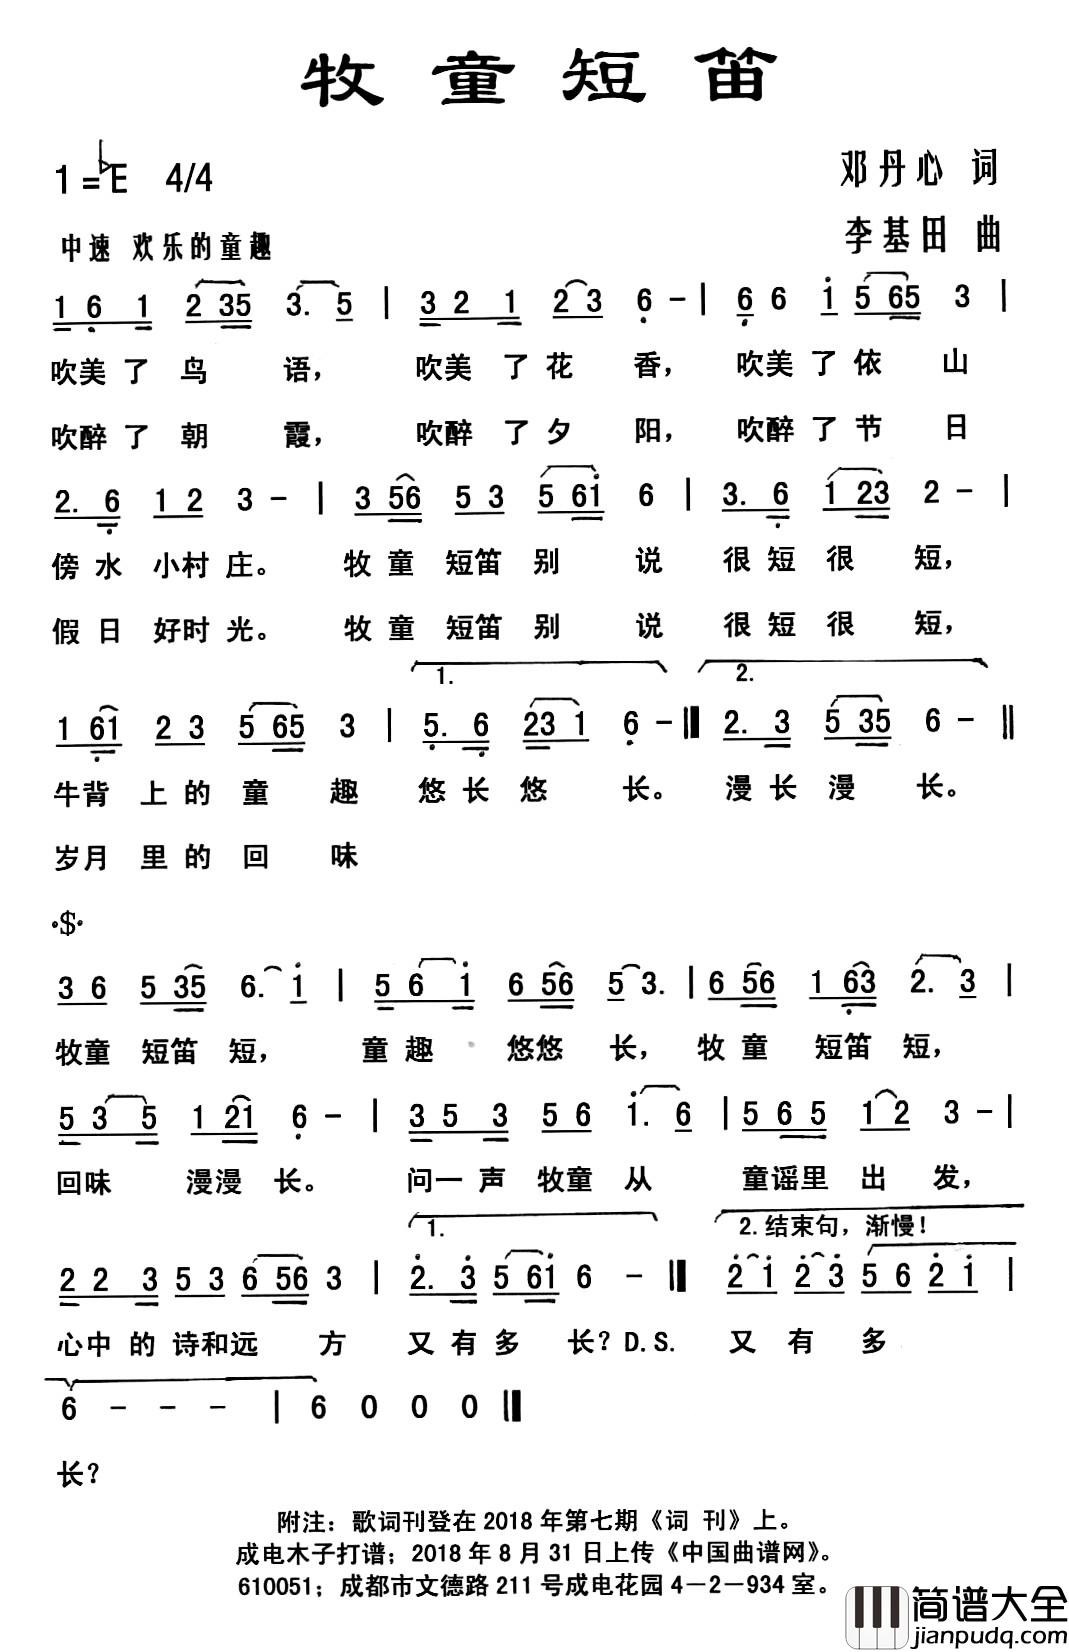 牧童短笛
1=♭E 4/4
邓丹心 词
中速 欢乐的童趣
李基田 曲
1 6 1 2 35 3. 5 | 3 2 1 2 3 6 - | 6 6 1 5 65 3 |
吹美了鸟语，吹美了花香，吹美了依山
吹醉了朝霞，吹醉了夕阳，吹醉了节日
2. 6 1 2 3 - | 3 56 5 3 5 61 6 | 3. 6 1 23 2 - |
傍水小村庄。牧童短笛别说很短很短，
假日好时光。牧童短笛别说很短很短，
1. 2.
1 61 2 3 5 65 3 | 5. 6 23 1 6 - | 2. 3 5 35 6 - ||
牛背上的童趣悠长悠长。漫长漫长。
岁月里的回味
·$·
3 6 5 35 6. 1 | 5 6 1 6 56 5 3. | 6 56 1 63 2. 3 |
牧童短笛短，童趣悠悠长，牧童短笛短，
5 3 5 1 21 6 - | 3 5 3 5 6 1. 6 | 5 6 5 1 2 3 - |
回味漫漫长。问一声牧童从童谣里出发，
1. 2.结束句，渐慢！
2 2 3 5 3 6 56 3 | 2. 3 5 61 6 - | 2 1 2 3 5 6 2 1 |
心中的诗和远方又有多长？D.S.又有多
6 - - - | 6 0 0 0 ||
长？
附注：歌词刊登在2018年第七期《词 刊》上。
成电木子打谱；2018年8月31日上传《中国曲谱网》。
610051；成都市文德路211号成电花园4－2－934室。
简谱大全
jianpudq.com